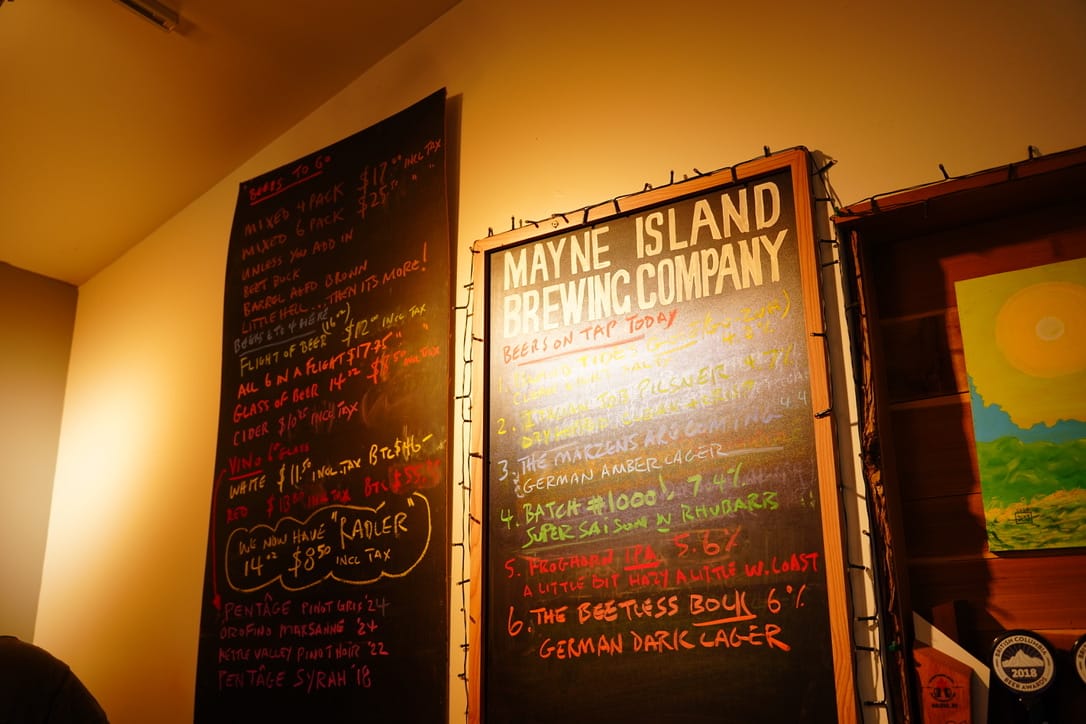 BEERS TO GO
MIXED 4 PACK $17.00 INCL TAX
MIXED 6 PACK $25.50 " "
UNLESS YOU ADD IN
BEET BOCK
BARREL AGED BROWN
LITTLE HELL... THEN ITS MORE!
HERE...
FLIGHT OF BEER (16oz) $12.00 INCL TAX
ALL 6 IN A FLIGHT $17.75 " "
GLASS OF BEER 14oz $8.50 INCL TAX
CIDER INCL TAX
VINO 6oz GLASS
WHITE $11.50 INCL.TAX BTL $46-
RED INCL TAX BTL
WE NOW HAVE "RADLER"
14oz $8.50 INCL TAX
PENTÂGE PINOT GRIS '24
OROFINO MARSANNE '24
KETTLE VALLEY PINOT NOIR '22
PENTÂGE SYRAH '18
MAYNE ISLAND
BREWING COMPANY
BEERS ON TAP TODAY
1.
2. PILSNER 4.7%
3. THE MARZENS ARE COMING
GERMAN AMBER LAGER
4. BATCH #1000! 7.4%
SUPER SAISON W RHUBARB
5. FROGHORN IPA 5.6%
A LITTLE BIT HAZY A LITTLE W. COAST
6. THE BEETLESS BOCK 6%
GERMAN DARK LAGER
BRITISH COLUMBIA
2018
BEER AWARDS